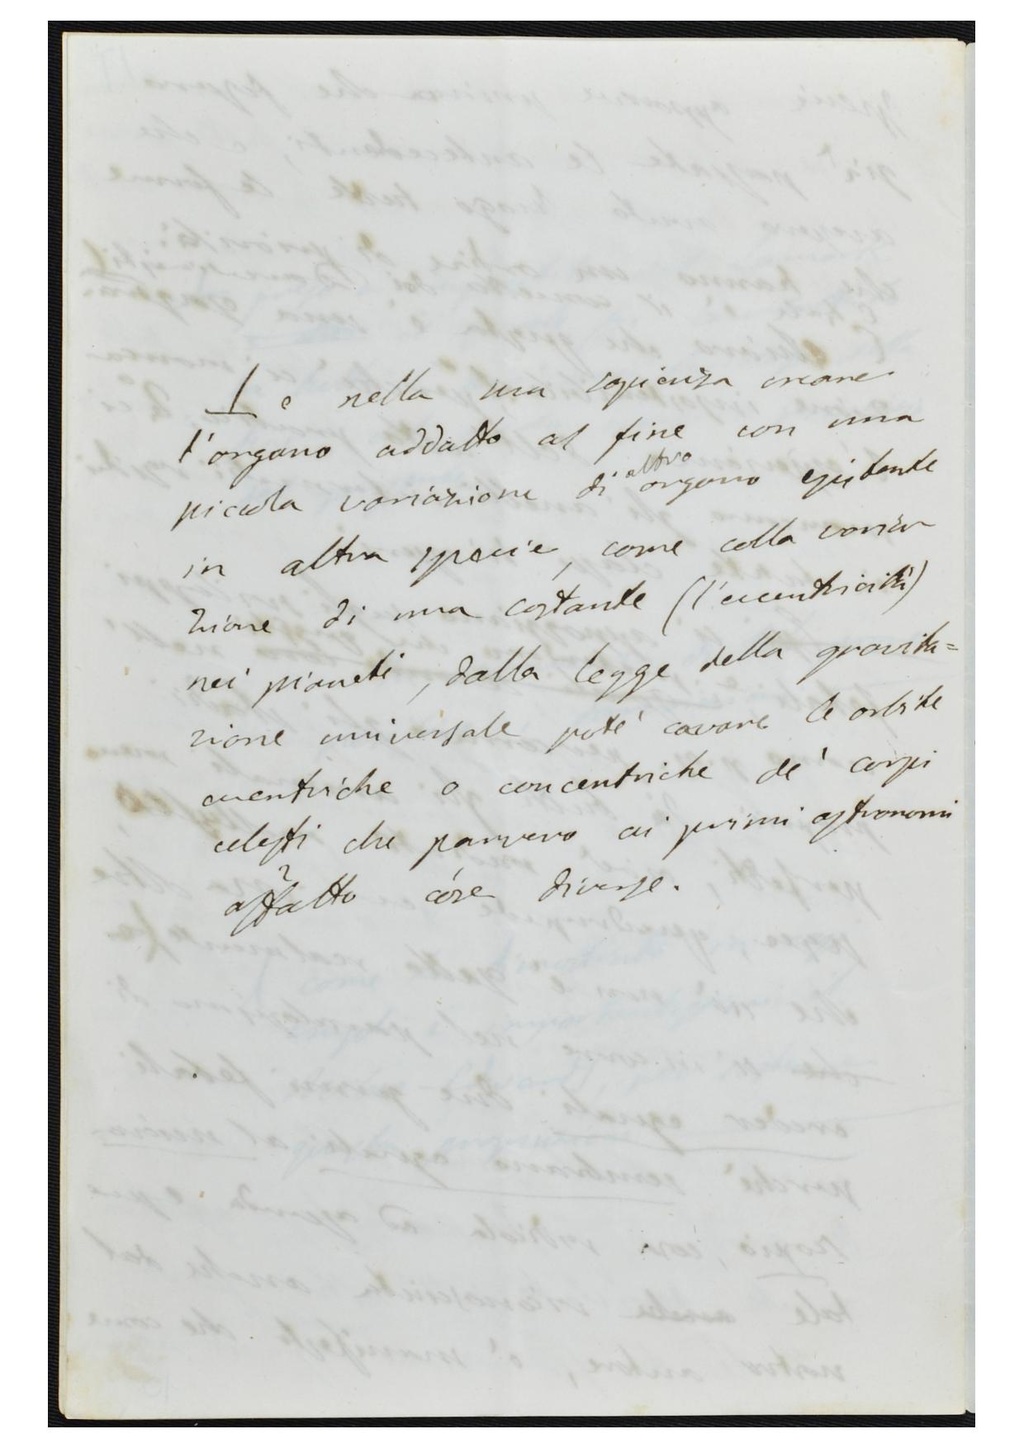 ⊥ e nella sua sapienza creare
l'organo addatto al fine con una
piccola variazione di altro organo esistente
in altra specie, come colla varia
zione di una costante (l'eccentricità)
nei pianeti, dalla legge della gravita=
zione universale poté cavare le orbite
eccentriche o concentriche de' corpi
celesti che parvero ai primi astronomi
affatto cose diverse.